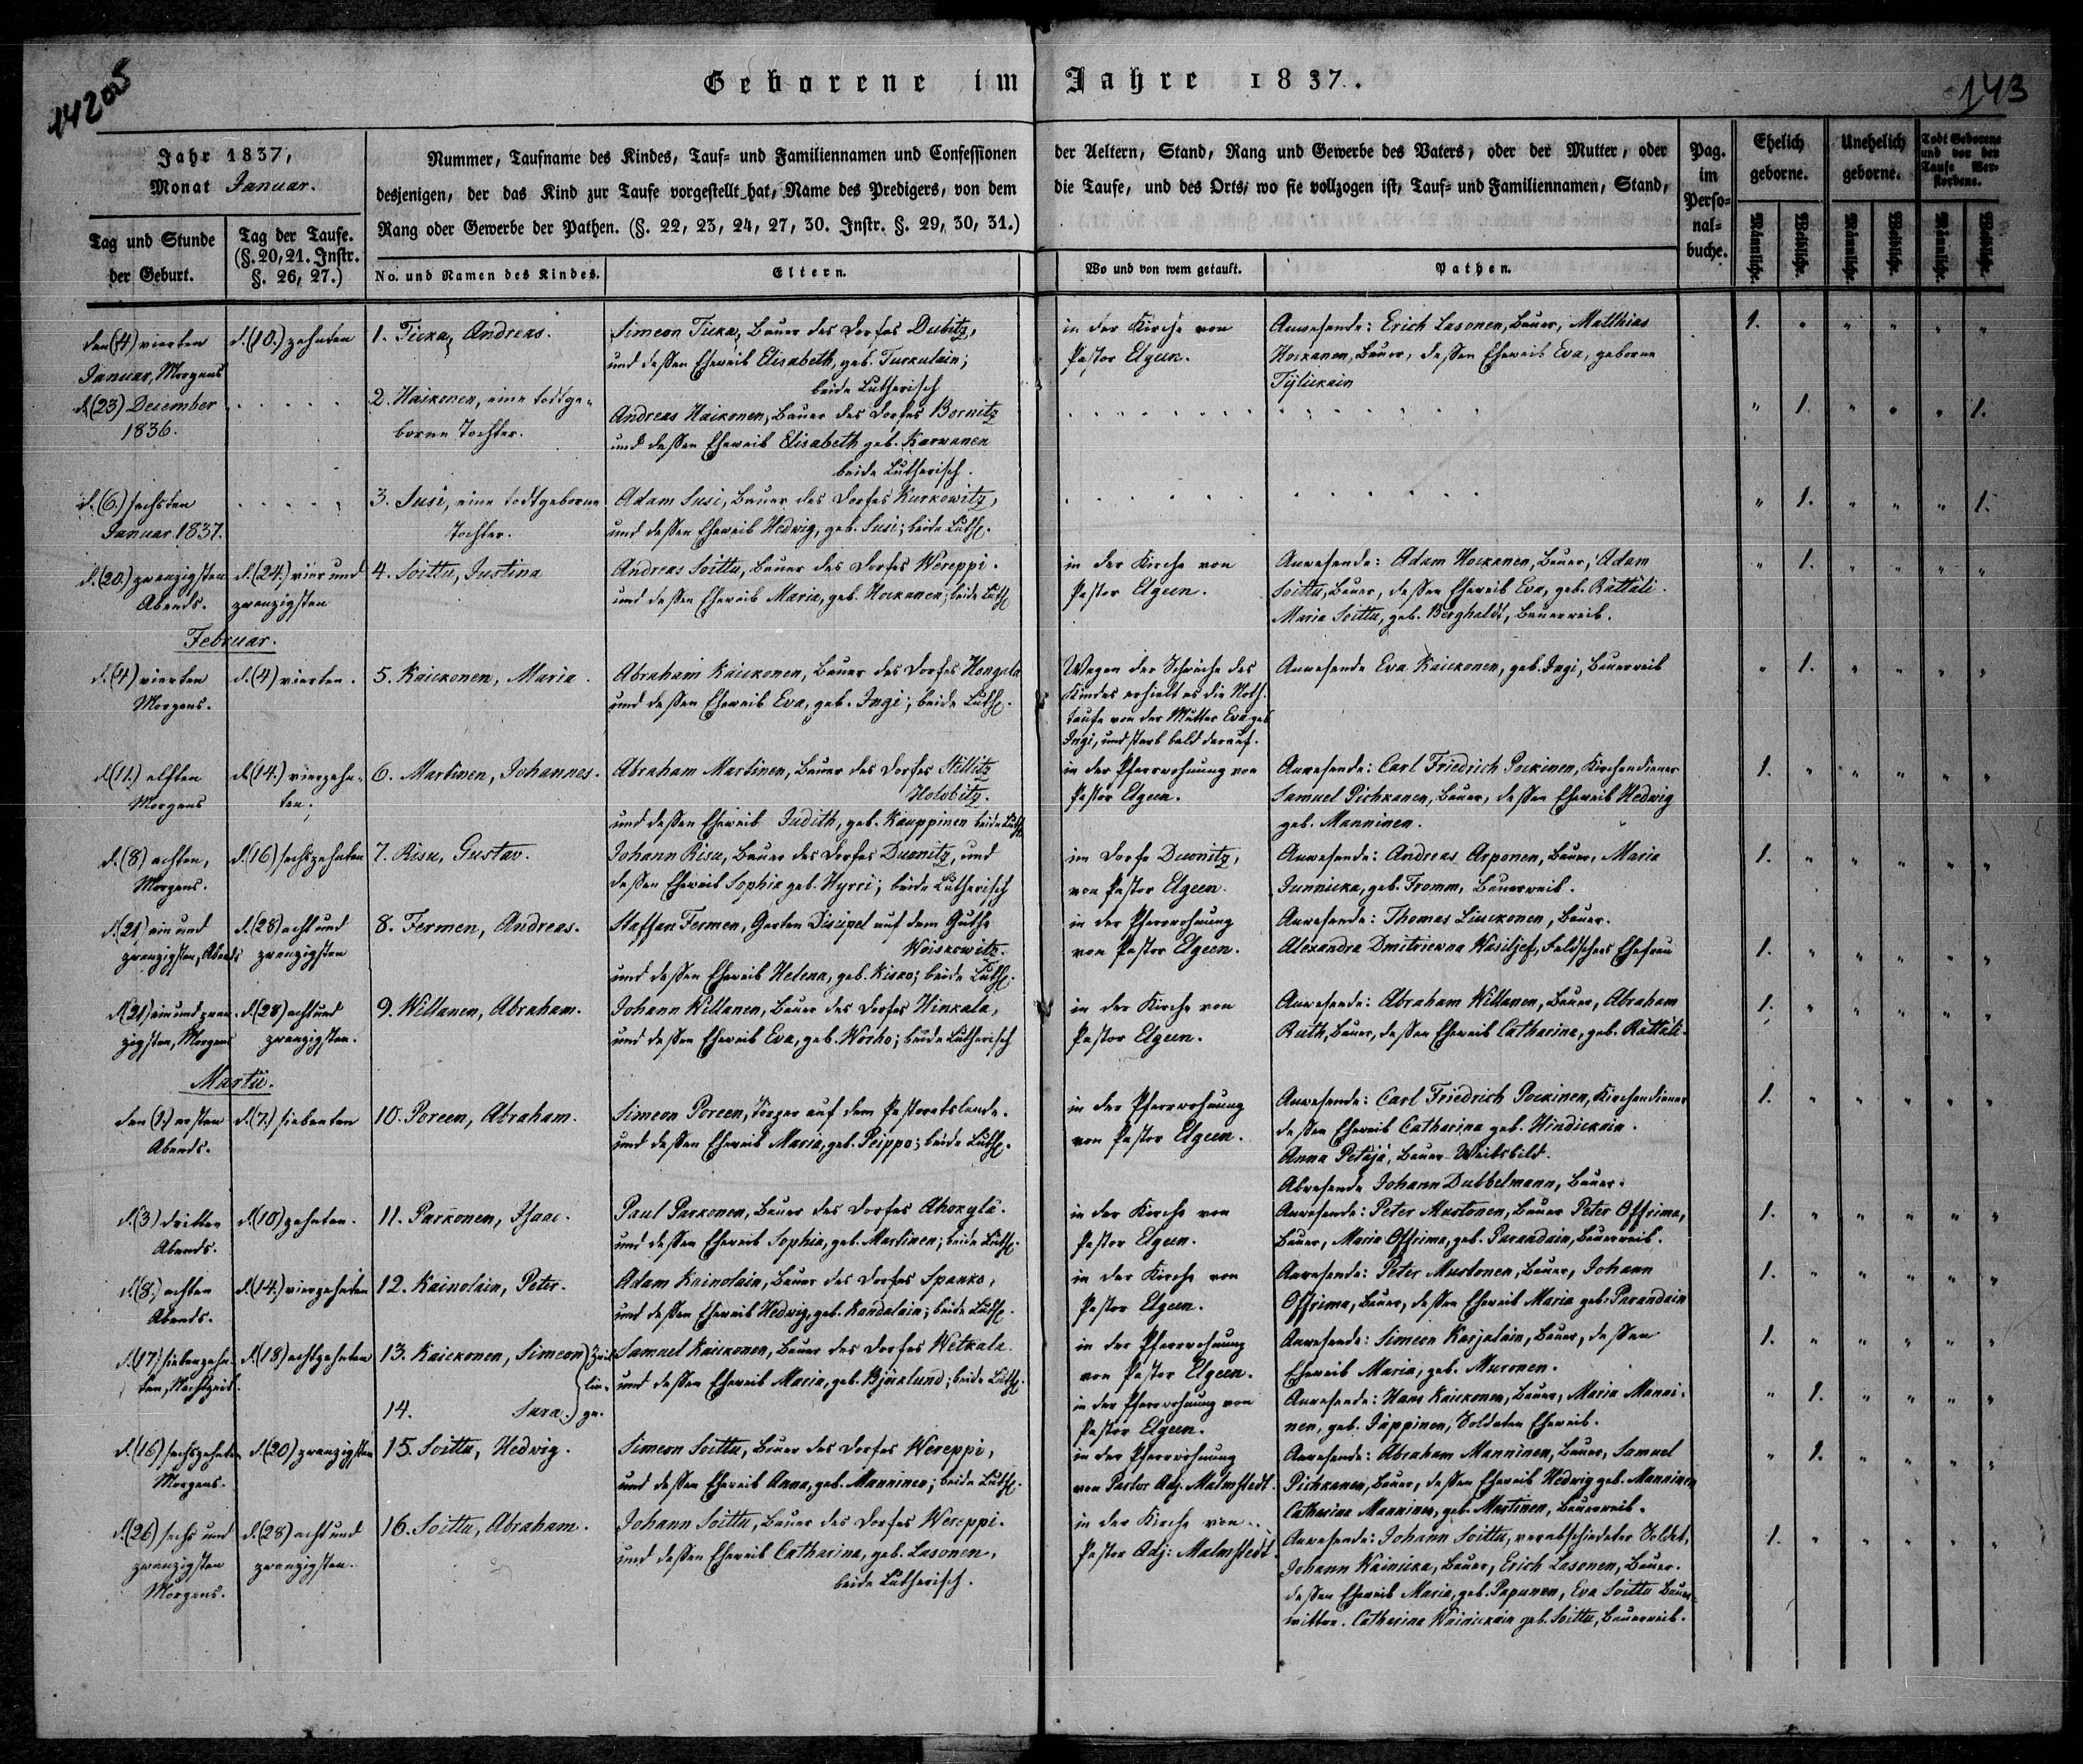 Geborene im Jahre 1837.
143
Jahr 1837,
Monat Januar.
Tag und Stunde
der Geburt.
Tag der Taufe.
(§. 20, 21. Instr.
§. 26, 27.)
Nummer, Taufname des Kindes, Tauf- und Familiennamen und Confessionen
desjenigen, der das Kind zur Taufe vorgestellt hat, Name des Predigers, von dem
Rang oder Gewerbe der Pathen. (§. 22, 23, 24, 27, 30. Instr. §. 29, 30, 31.)
No. und Namen des Kindes.
Eltern.
der Aeltern, Stand, Rang und Gewerbe des Vaters, oder der Mutter, oder
die Taufe, und des Orts, wo sie vollzogen ist, Tauf- und Familiennamen, Stand,
Wo und von wem getauft.
Pathen.
Pag.
im
Perso-
nal-
buche.
Ehelich
geborne.
Unehelich
geborne.
Todt Geborene
und vor der
Taufe Ver-
storbene.
Männliche.
Weibliche.
Männliche.
Weibliche.
Männliche.
Weibliche.
den (4) vierten
Januar, Morgens
d. (10.) zehnten
1. Ticka, Andreas.
Simeon Ticka, Bauer des Dorfes Dubitz,
und dessen Eheweib Elisabeth, geb. Turkulain;
beide Lutherisch
in der Kirche von
Pastor Elgeen.
Anwesende: Erich Lasonen, Bauer, Matthias
Hockanen, Bauer, dessen Eheweib Eva, geborne
Tÿlickain
1.
d. (23) December
1836.
2. Haikonen, eine todtge-
borne Tochter.
Andreas Haikonen, Bauer des Dorfes Bornitz
und dessen Eheweib Elisabeth geb. Karwanen
beide Lutherisch.
1. 1.
d. (6.) sechsten
Januar 1837.
3. Susi, eine todtgeborne
Tochter.
Adam Susi, Bauer des Dorfes Kurkowitz,
und dessen Eheweib Hedwig, geb. Susi; beide Luth.
1. 1.
d. (20.) zwanzigsten
Abends.
d. (24.) vier und
zwanzigsten
4. Soittu, Justina
Andreas Soittu, Bauer des Dorfes Wereppi.
und dessen Eheweib Maria, geb. Hockanen; beide Luth.
in der Kirche von
Pastor Elgeen.
Anwesende: Adam Hockanen, Bauer, Adam
Soittu, Bauer, dessen Eheweib Eva, geb. Rättäli.
Maria Soittu, geb. Berghaldt, Bauerweib.
1.
Februar.
d. (4) vierten
Morgens.
d. (4) vierten.
5. Kaickonen, Maria.
Abraham Kaickonen, Bauer des Dorfes Hongola
und dessen Eheweib Eva, geb. Ingi; beide Luth.
Wegen der Schwäche des
Kindes erhielt es die Noth-
taufe von der Mutter Eva geb.
Ingi, und starb bald darauf.
Anwesende Eva Kaickonen, geb. Ingi, Bauerweib
1.
d. (11.) elften
Morgens
d. (14.) vierzehn-
ten.
6. Martinen, Johannes.
Abraham Martinen, Bauer des Dorfes
Holobitz.
und dessen Eheweib Judith, geb. Kauppinen beide Luth.
in der Pfarrwohnung von
Pastor Elgeen.
Anwesende: Carl Friedrich Pockinen, Kirchendiener
Samuel Pichkanen, Bauer, dessen Eheweib Hedwig
geb. Manninen.
1.
d. (8) achten,
Morgens.
d. (16) sechszehnten
7. Risu, Gustav.
Johann Risu, Bauer des Dorfes Duwnitz, und
dessen Eheweib Sophia geb. Hyrri; beide Lutherisch
im Dorfe Duwnitz,
von Pastor Elgeen.
Anwesende: Andreas Arponen, Bauer, Maria
Junnicka, geb. Fromm, Bauerweib.
1.
d. (21) ein und
zwanzigsten, Abends
d. (28) acht und
zwanzigsten
8. Fermen, Andreas.
Staffan Fermen, Garten Discipel auf dem Guthe
Woiskowitz.
und dessen Eheweib Helena, geb. Kisko; beide Luth.
in der Pfarrwohnung
von Pastor Elgeen.
Anwesende: Thomas Liuckonen, Bauer.
Alexandra Dmitriewna Wasiljef, Feldschers Ehefrau
1.
d. (21) ein und zwan-
zigsten, Morgens
d. (28) acht und
zwanzigsten.
9. Willanen, Abraham.
Johann Willanen, Bauer des Dorfes Hinkala,
und dessen Eheweib Eva, geb. Worho; beide Lutherisch
in der Kirche von
Pastor Elgeen.
Anwesende: Abraham Willanen, Bauer, Abraham
Ruth, Bauer, dessen Eheweib Catharina, geb. Rättäli.
1.
Martii.
den (1.) ersten
Abends.
d. (7.) siebenten
10. Poreen, Abraham.
Simeon Poreen, Törper auf dem Pastoratslande.
und dessen Eheweib Maria, geb. Peippo; beide Luth.
in der Pfarrwohnung
von Pastor Elgeen.
Anwesende: Carl Friedrich Pockinen, Kirchendiener
dessen Eheweib Catharina geb. Hindickain.
Anna Petäjä, Bauer-Weibsbild.
Abwesende Johann Dubbelmann, Bauer.
1.
d. (3) dritten
Abends.
d. (10) zehnten.
11. Parkonen, Isaac.
Paul Parkonen, Bauer des Dorfes Ahokylä.
und dessen Eheweib Sophia, geb. Martinen; beide Luth.
in der Kirche von
Pastor Elgeen.
Anwesende: Peter Mustonen, Bauer Peter Offrima,
Bauer, Maria Offrima, geb. Parandain, Bauerweib.
1.
d. (8.) achten
Abends.
d. (14.) vierzehnten
12. Kainolain, Peter.
Adam Kainolain, Bauer des Dorfes Spanko,
und dessen Eheweib Hedwig, geb. Kandalain; beide Luth.
in der Kirche von
Pastor Elgeen.
Anwesende: Peter Mustonen, Bauer, Johann
Offrima, Bauer, dessen Eheweib Maria geb. Parandain
1.
d. (17) siebenzehn-
ten, Nachtzeit.
d. (18) achtzehnten
13. Kaickonen, Simeon } Zwil-
lin-
14. Sara. } ge.
Samuel Kaickonen, Bauer des Dorfes Wetkala.
und dessen Eheweib Maria, geb. Björklund; beide Luth.
in der Pfarrwohnung
von Pastor Elgeen.
Anwesende: Simeon Karjalain, Bauer, dessen
Eheweib Maria, geb. Muronen.
1.
in der Pfarrwohnung von
Pastor Elgeen.
Anwesende: Hans Kaickonen, Bauer, Maria Manni-
nen, geb. Jäppinen, Soldaten Eheweib.
1.
d. (16) sechszehnten
Morgens.
d. (20) zwanzigsten
15. Soittu, Hedwig.
Simeon Soittu, Bauer des Dorfes Wereppi,
und dessen Eheweib Anna, geb. Manninen; beide Luth.
in der Pfarrwohnung
von Pastor Adj. Malmstedt.
Anwesende: Abraham Manninen, Bauer, Samuel
Pichkanen, Bauer, dessen Eheweib Hedwig geb. Manninen
Catharina Manninen, geb. Martinen, Bauerweib.
1.
d. (26) sechs und
zwanzigsten
Morgens.
d. (28) acht und
zwanzigsten.
16. Soittu, Abraham.
Johann Soittu, Bauer des Dorfes Wereppi.
und dessen Eheweib Catharina, geb. Lasonen,
beide Lutherisch.
in der Kirche von
Pastor Adj: Malmstedt.
Anwesende: Johann Soittu, verabschiedeter Soldat,
Johann Wainicka, Bauer, Erich Lasonen, Bauer.
dessen Eheweib Maria, geb. Papunen, Eva Soittu Bauer-
wittwe. Catharina Wainickain geb. Soittu, Bauerweib.
1.